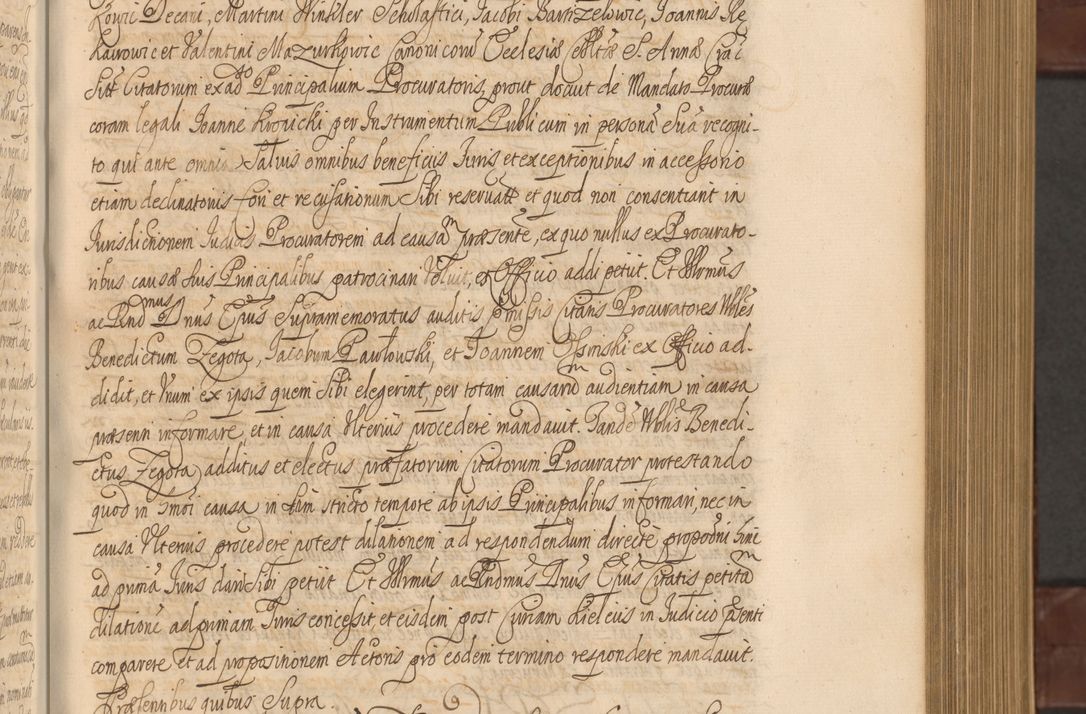 kowic Decani, Martini Winkler Scholastici, Jacobi Bartzelowic, Joannis Re
kavrowic et Valentini Mazurkowic Canonicorũ Ecclesiæ Colltæ S. Annæ Crac
Sist Citatorum ex adõ Principalium Procuratoris, prout docuit de Mandato Procurõ
coram legali Joanne Krosicki per Instrumentum Publicum in personã Suã recogni-
to qui ante omnia Saluis omnibus beneficijs Juris et exceptionibus in accessorio
etiam declinatorijs Fori et recusationum Sibi reseruatt et quod non consentiant in
Jurisdictionem Judicis Procuratorem ad causãm præsentẽ, ex quo nullus ex Procurato-
ribus causæ suis Principalibus patrocinari voluit, ex Officio addi petijt. Et Illrmũs
ac Rndmus Dnus Ejũs Supramemoratus auditis præmissis Citatis Procuratores Nbles
Benedictum Zegota, Jacobum Pawłowski, et Joannem Ossinski ex Officio ad-
didit, et Vnum ex ipsis quem Sibi elegerint, per totam causarum audientiam in causa
præsenti informare, et in causa Vlterius procedere mandauit. Tandẽ Nblis Benedi-
ctus Zegota, additus et electus præfatorum Citatorum Procurator protestando
quod in hmõi causa in tam stricto tempore ab ipsis Principalibus informari, nec in
causa Vlterius procedere potest dilationem ad respondendum directe propõni Sive
ad primã Juris dari Sibi petijt Et Illrmus ac Rndmus Dnus Ejus Citatis petitam
dilationẽ ad primam Juris concessit et eisdem post Curiam Kielcijs in Judicio præsenti
comparere et ad propositionem Actoris pro eodem termino respondere mandauit.
Præsentibus quibus Supra.